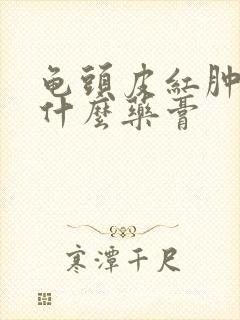 龟頭皮紅肿
什麼藥膏
寒潭千尺